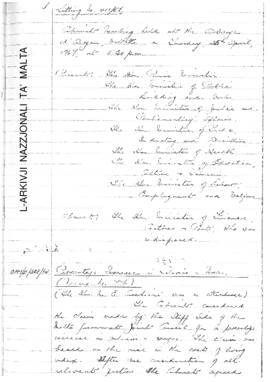 L-ARKIVJI NAZZJONALI TA' MALTA
Sitting No.
Cabinet Meeting held at the Auberge
d'Aragon Valletta on Tuesday 25th April,
1967 at 5.30 p.m.
Present: The Hon. Prime Minister
The Hon. Minister of Public
Building and Works
The Hon. Minister of Justice and
Parliamentary Affairs
The Hon. Minister of Trade,
Industry and
The Hon. Minister of Health
The Hon. Minister of Education,
Culture and Tourism
The Hon. Minister of Labour,
Employment and Welfare
Absent: The Hon. Minister of Finance,
Customs and Ports, who was
indisposed.
Percentage Increase in Salaries &
was in attendance)
The Cabinet considered
the claim made by the Staff Side of the
Malta Government Joint Council for a percentage
increase in salaries & wages. The claim was
based on the rise in the cost of living
index. After due consideration of all
relevant factors the Cabinet agreed